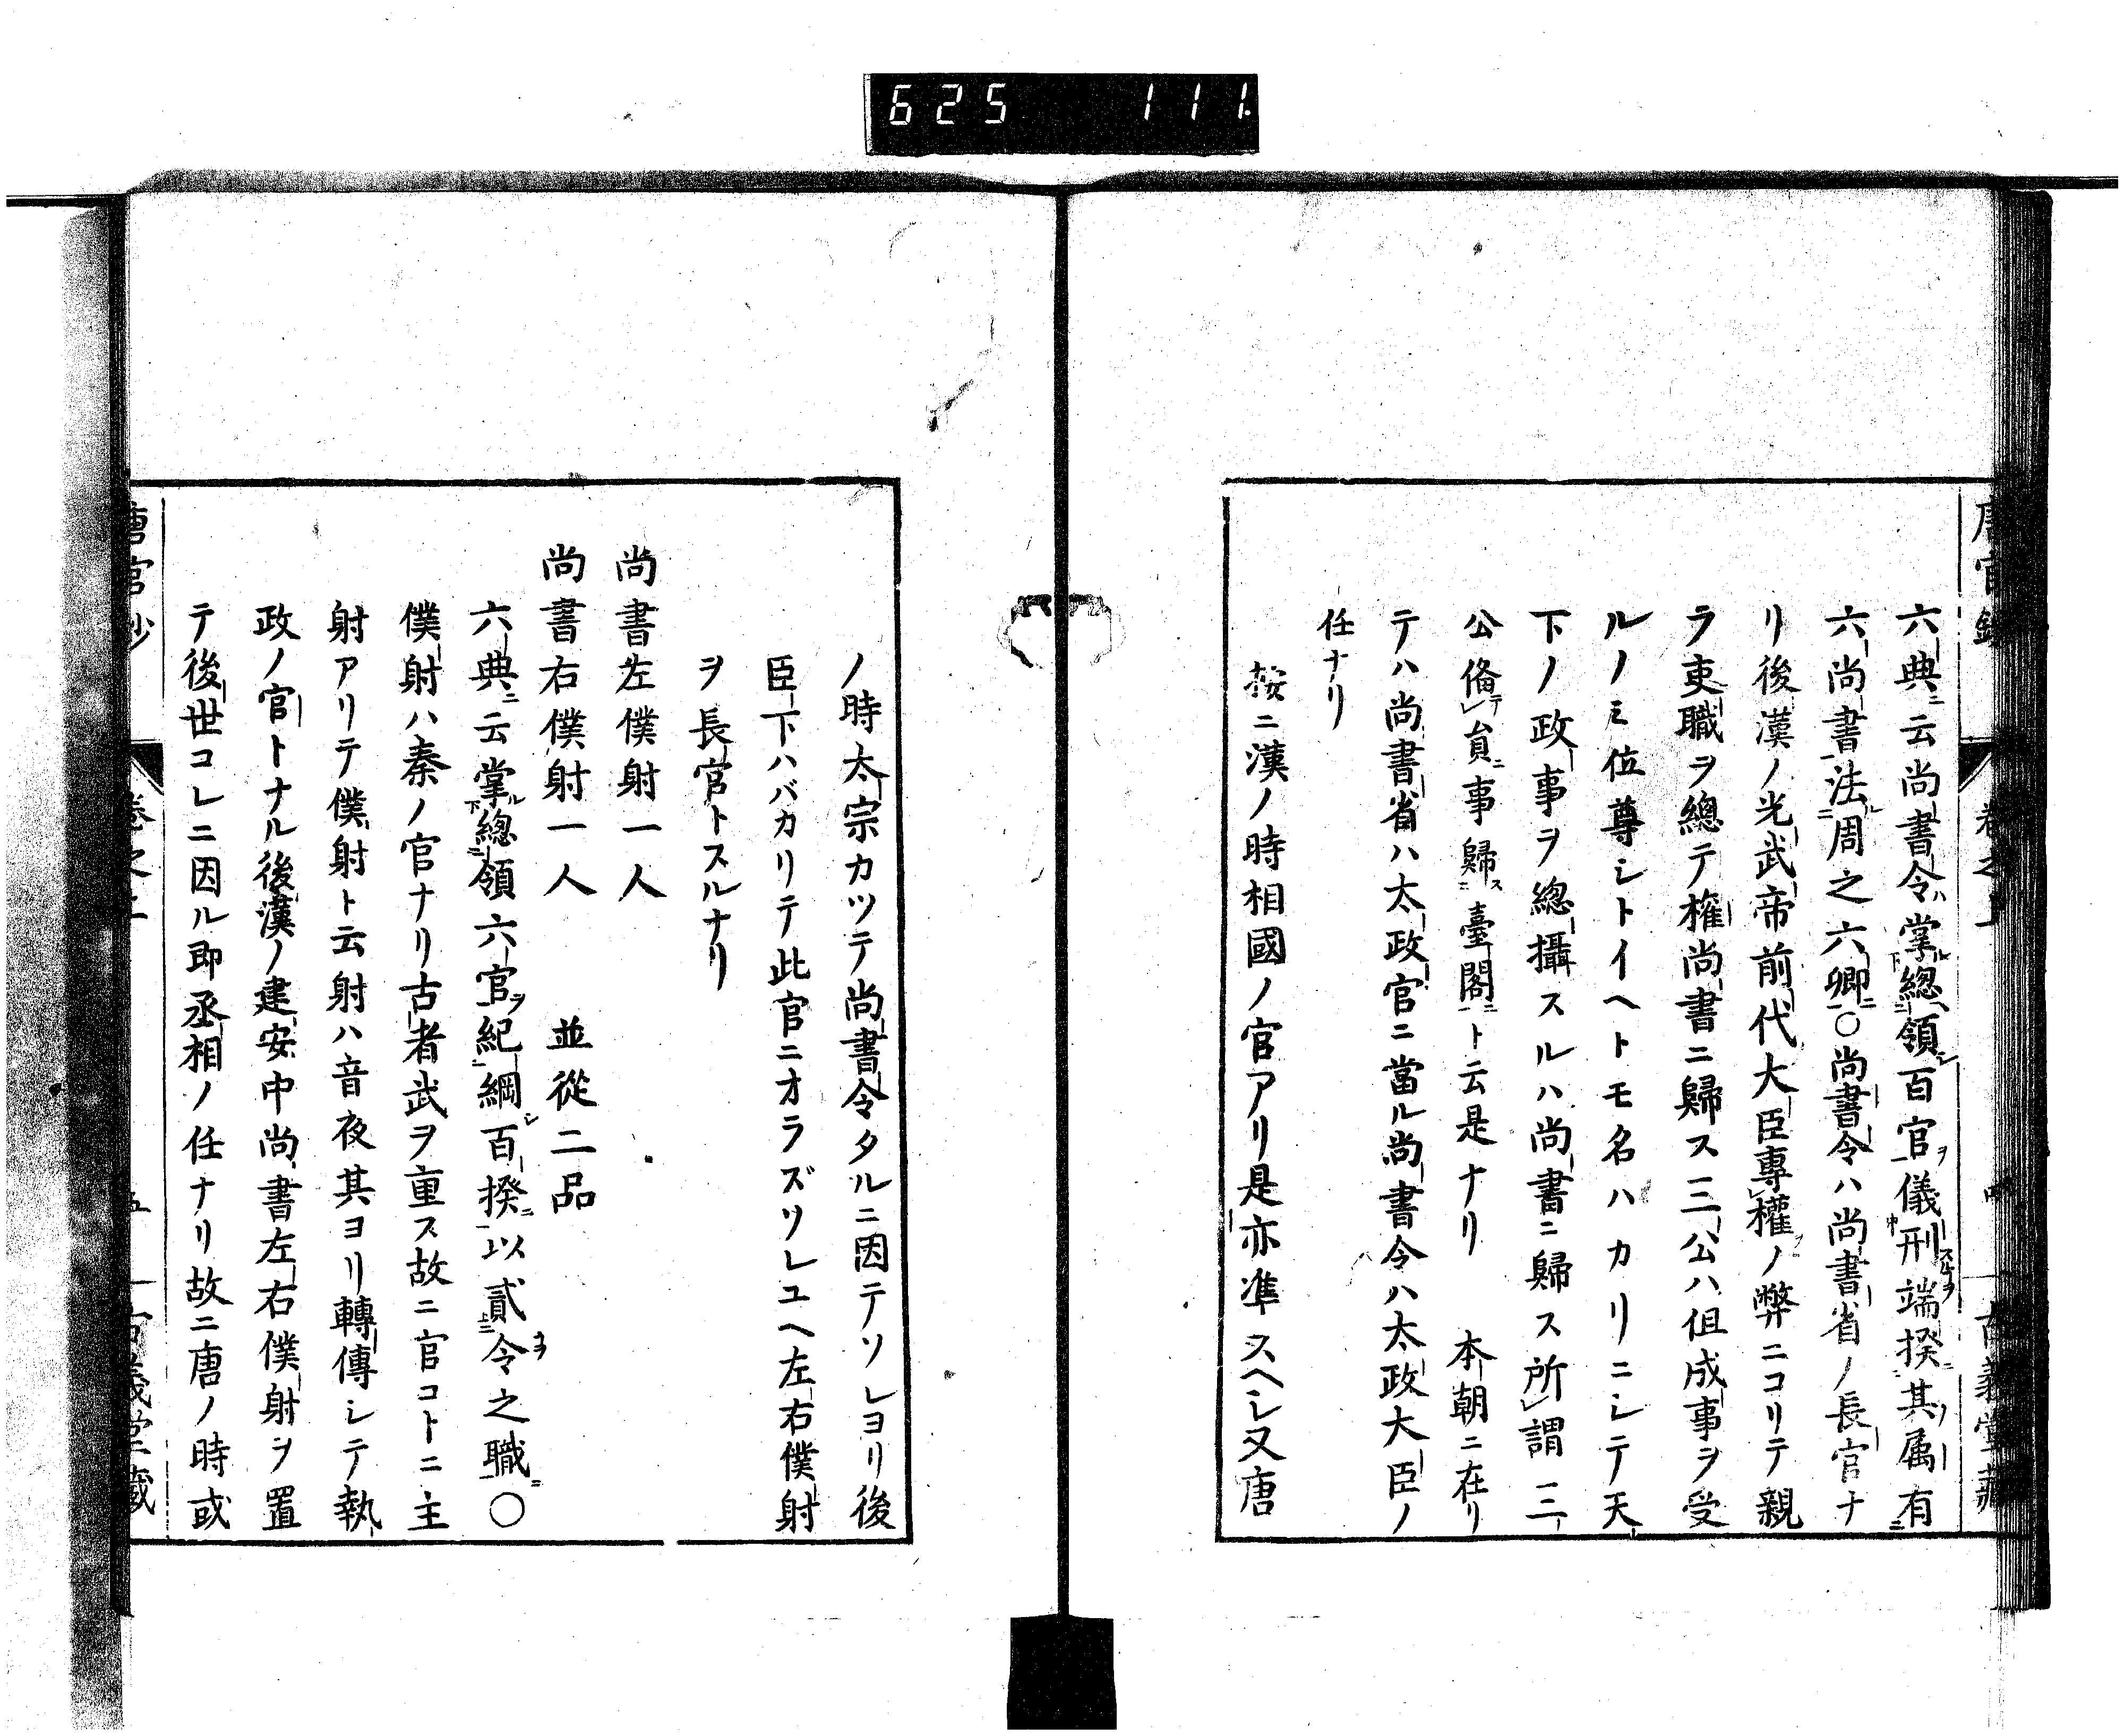 625 111
六典ニ云尚書令ハ掌ル總領シ百官ヲ儀刑スルヿヲ端揆ニ其ノ属有ニ
六尚書法ル周之六卿ニ○尚書令ハ尚書省ノ長官ナ
リ後漢ノ光武帝前代大臣專權ノ弊ニコリテ親
ラ吏職ヲ總テ權尚書ニ歸ス三公ハ但成事ヲ受
ルノミ位尊シトイヘトモ名ハカリニシテ天
下ノ政事ヲ總攝スルハ尚書ニ歸ス所謂三
公備テ員ニ事歸ス臺閣ニト云是ナリ 本朝ニ在リ
テハ尚書省ハ太政官ニ當ル尚書令ハ太政大臣ノ
任ナリ
按ニ漢ノ時相國ノ官アリ是亦準スヘシ又唐
ノ時太宗カツテ尚書令タルニ因テソレヨリ後
臣下ハバカリテ此官ニオラズソレユヘ左右僕射
ヲ長官トスルナリ
尚書左僕射一人
尚書右僕射一人 並從二品
六典ニ云掌ル總領六官ヲ紀綱シ百揆ニ以貳令之職ニ○
僕射ハ秦ノ官ナリ古者武ヲ重ス故ニ官コトニ主
射アリテ僕射ト云射ハ音夜其ヨリ轉傳シテ執
政ノ官トナル後漢ノ建安中尚書左右僕射ヲ置
テ後世コレニ因ル即丞相ノ任ナリ故ニ唐ノ時或
唐官鈔 卷之二 五 古義堂藏